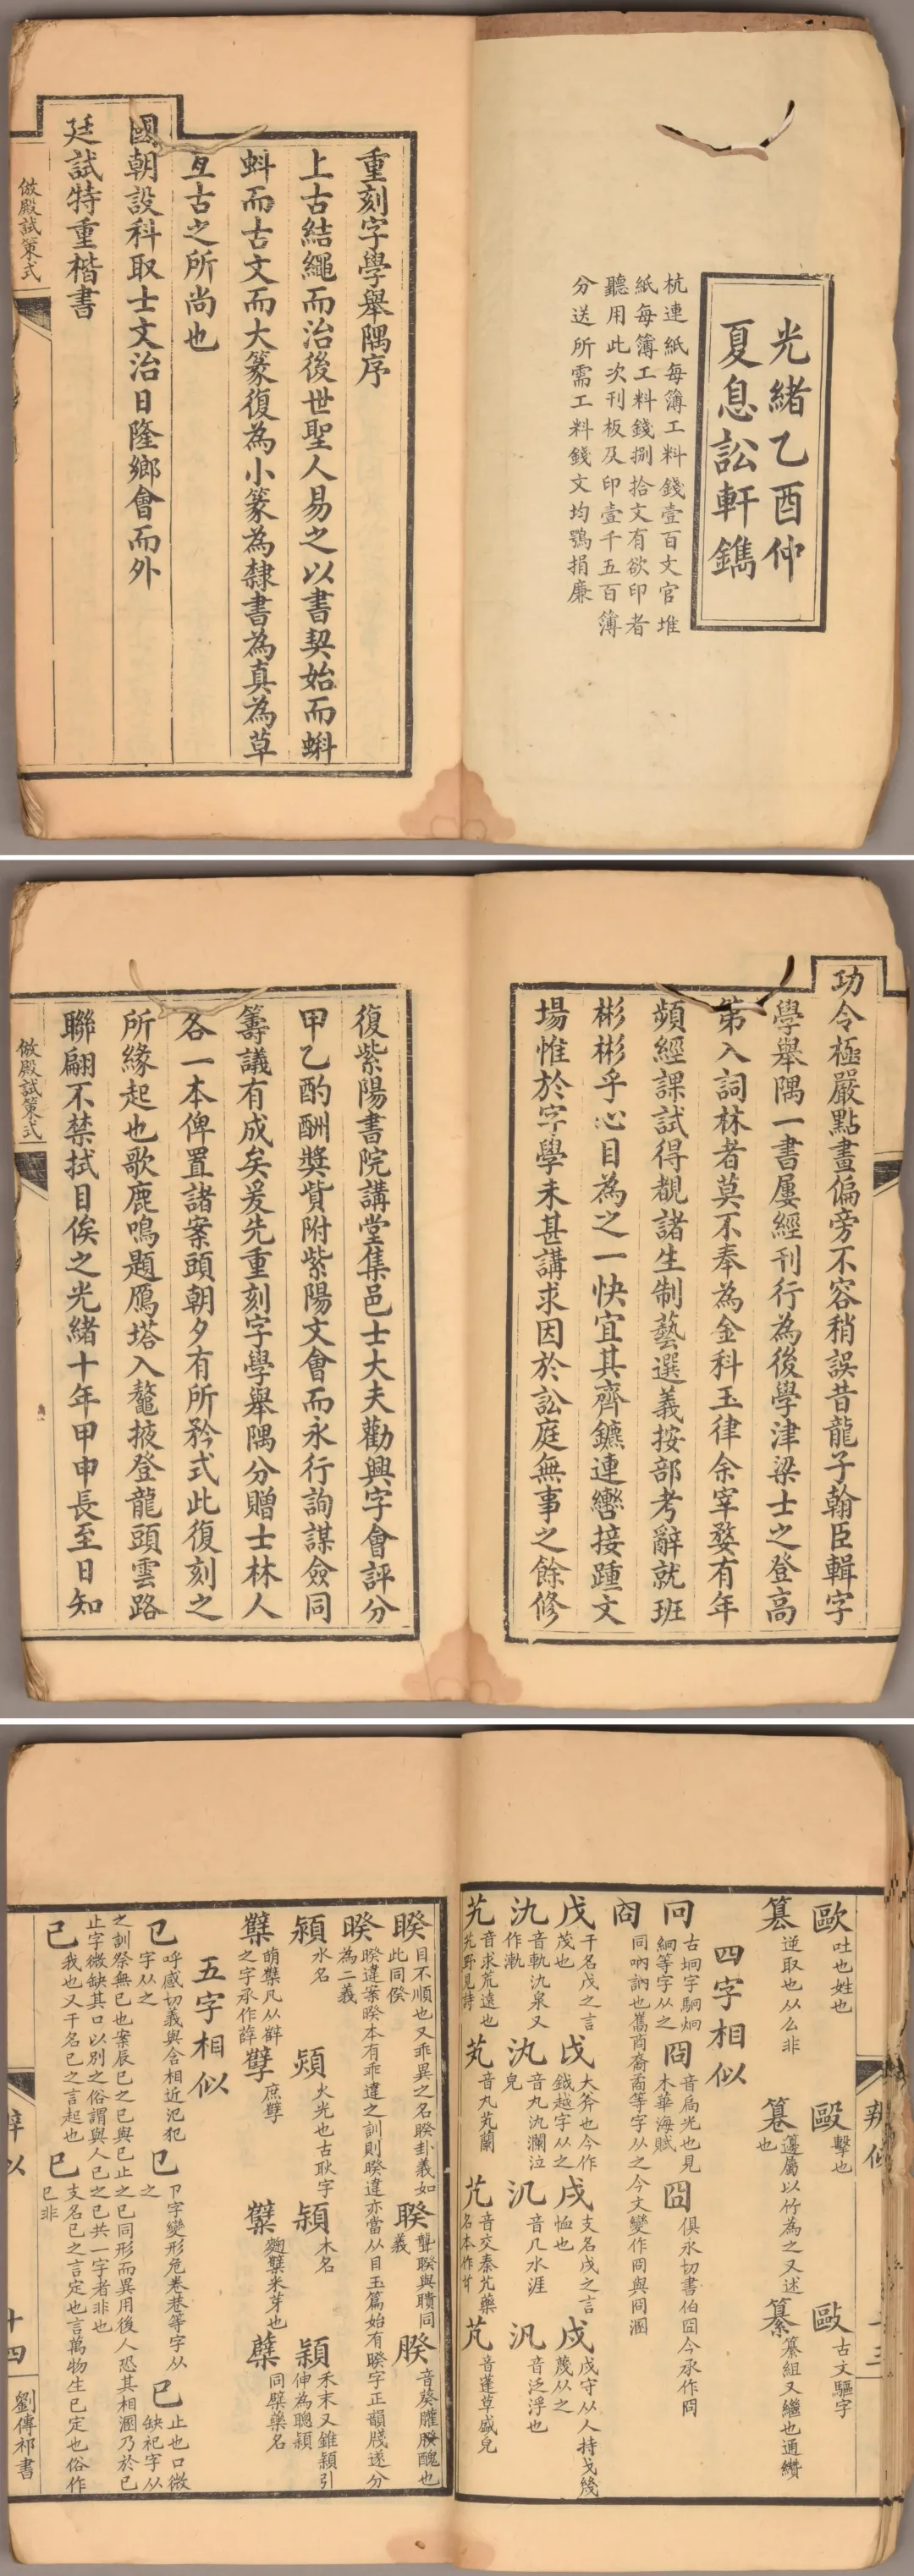 光緒乙酉仲
夏息訟軒鐫
杭連紙每簿工料錢壹百文官堆
紙每簿工料錢捌拾文有欲印者
聽用此次刊板及印壹千五百簿
分送所需工料錢文均鶚捐廉
重刻字學舉隅序
上古結繩而治後世聖人易之以書契始而蝌
蚪而古文而大篆復為小篆為隸書為真為草
亙古之所尚也
國朝設科取士文治日隆鄉會而外
廷試特重楷書
倣殿試策式
功令極嚴點畫偏旁不容稍誤昔龍子翰臣輯字
學舉隅一書屢經刊行為後學津梁士之登高
第入詞林者莫不奉為金科玉律余宰婺有年
頻經課試得覩諸生制藝選義按部考辭就班
彬彬乎心目為之一快宜其齊鑣連轡接踵文
場惟於字學未甚講求因於訟庭無事之餘修
復紫陽書院講堂集邑士大夫勸興字會評分
甲乙酌酬獎貲附紫陽文會而永行詢謀僉同
籌議有成矣爰先重刻字學舉隅分贈士林人
各一本俾置諸案頭朝夕有所矜式此復刻之
所緣起也歌鹿鳴題鴈塔入鼇掖登龍頭雲路
聯翩不禁拭目俟之光緒十年甲申長至日知
倣殿試策式
辨似
十三
歐 吐也姓也 毆 擊也 敺 古文驅字
篡 逆取也从厶非 篹 籩屬以竹為之又述也 纂 纂組又繼也通纘
四字相似
冋 古坰字駉炯絅等字从之 冏 音扃光也見木華海賦 囧 俱永切書伯囧今承作冏
㕯 同吶訥也巂商裔矞等字从之今文變作冏與冏溷
戊 干名戊之言茂也 戉 大斧也今作鉞越字从之 戌 支名戌之言恤也 戍 戍守从人持戈幾蔑从之
氿 音軌氿泉又作漸 汍 音丸汍瀾泣皃 汎 音几水涯 汎 音泛浮也
艽 音求荒遠也艽野見詩 芄 音丸芄蘭 艽 音交秦艽藥名本作芁 芃 音蓬草盛皃
睽 目不順也又乖異之名睽卦義如此同傒 聧 聾聧與聵同義 䐧 音葵朣䐧醜也
暌 暌違案睽本有乖違之訓則暌違亦當从目玉篇始有暌字正韻牋遂分為二義
潁 水名 熲 火光也古耿字 潁 木名 穎 禾末又錐穎引伸為聰穎
蘖 萌蘖凡从辥之字承作薛 孽 庶孽 糱 麴糱米芽也 櫱 同檗藥名
五字相似
㔾 呼感切義與含相近氾犯字从之 㔾 卩字變形危卷巷等字从之 已 止也口微缺祀字从
之訓祭無已也案辰巳之巳與已止之已同形而異用後人恐其相溷乃於已
止字微缺其口以別之俗謂與人己之己共一字者非也
己 我也又干名己之言起也 巳 支名巳之言定也言萬物生已定也俗作已非
辨似
十四
劉傳祁書